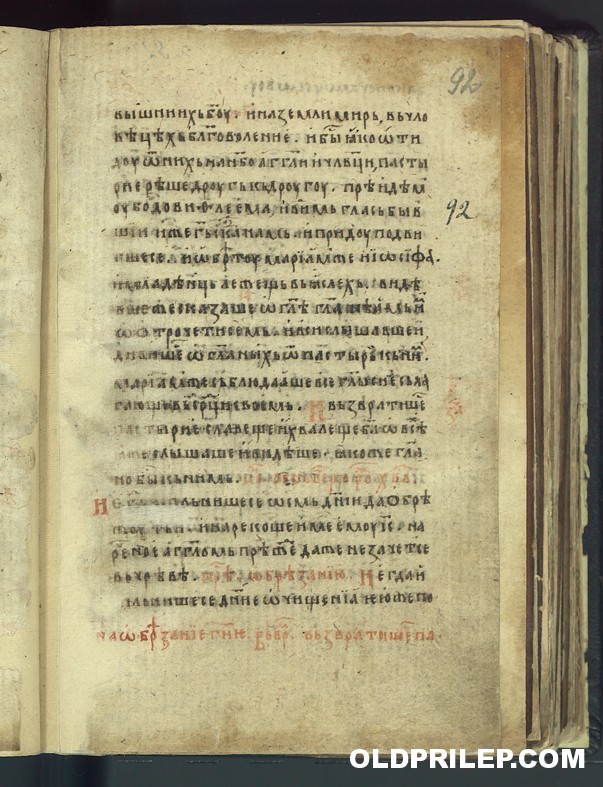 92
вьішнихь боу. и на земли мирь, вь чло
вѣцѣхь бл҃говоление. и бы҃ ꙗко ѿти
доу ѿ нихь на нб҃о агг҃ли и чл҃вци, пасты
рие рѣше дроугь кь дроугоу. прѣидѣм
оубо до виѳлеема, и видимь гл҃ась бывь
92
шїи, иже г҃ь сказа намь. и придоу подви
гшесе. и ѡбрѣтоу марїамь же и їѡсїфа.
и младѣнць лежещь вь ꙗслехь. видѣ
вше же сказаше ѡ гл҃ѣ гл҃аннѣмь имь
ѡ ѡтрочети семь. и вси слышавшеи,
дивише ѿ гл҃аныхь ѿ пастырь кь ним.
марїа же сьблюдааше все гл҃ы сие сьла
гающи вь ср҃дци своемь. И вьзвратише
пастырие славеще и хвалеще б҃а ѡ всѣ
слышаше и видѣше. ꙗкоже гл҃а
но бы҃ кь нимь.
И
льнише се ѡсмь дн҃и да ѡбрѣ
и нарекоше име емоу і҃с. на
реное агг҃ломь прѣжде даже не зачетсе
вь чрѣвѣ. ѡбрѣзанїю. Егда и
льнише се дн҃ие ѡчищенїа ею же по
на ѡбрѣзанїе г҃не. вьзвратише па
OLDPRILEP.COM